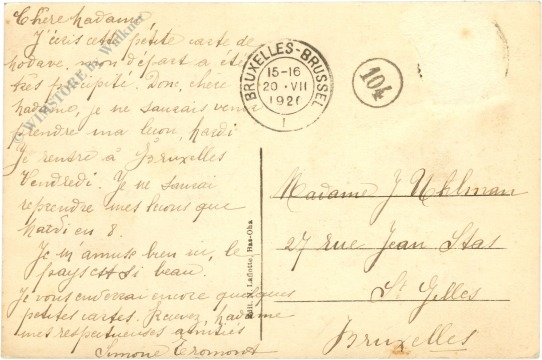 Chère Madame,
J'écris cette petite carte de
hodave. mon départ a été
très précipité. Donc, chère
Madame, je ne saurais venir
prendre ma leçon, Mardi
Je rentre à Bruxelles
Vendredi. Je ne saurai
reprendre mes leçons que
Mardi en 8.
Je m'amuse bien ici, le
pays est si beau.
Je vous enverrai encore quelques
petites cartes. Recevez, Madame
mes respectueuses amitiés
Simone Tromont
© WINSTORE by Winkner
BRUXELLES-BRUSSEL
15-16
20 · VII
192
1
104
Edit. Laflotte, Bas-Oha
Madame J Uhlman
27 rue Jean Stas
St Gilles
Bruxelles